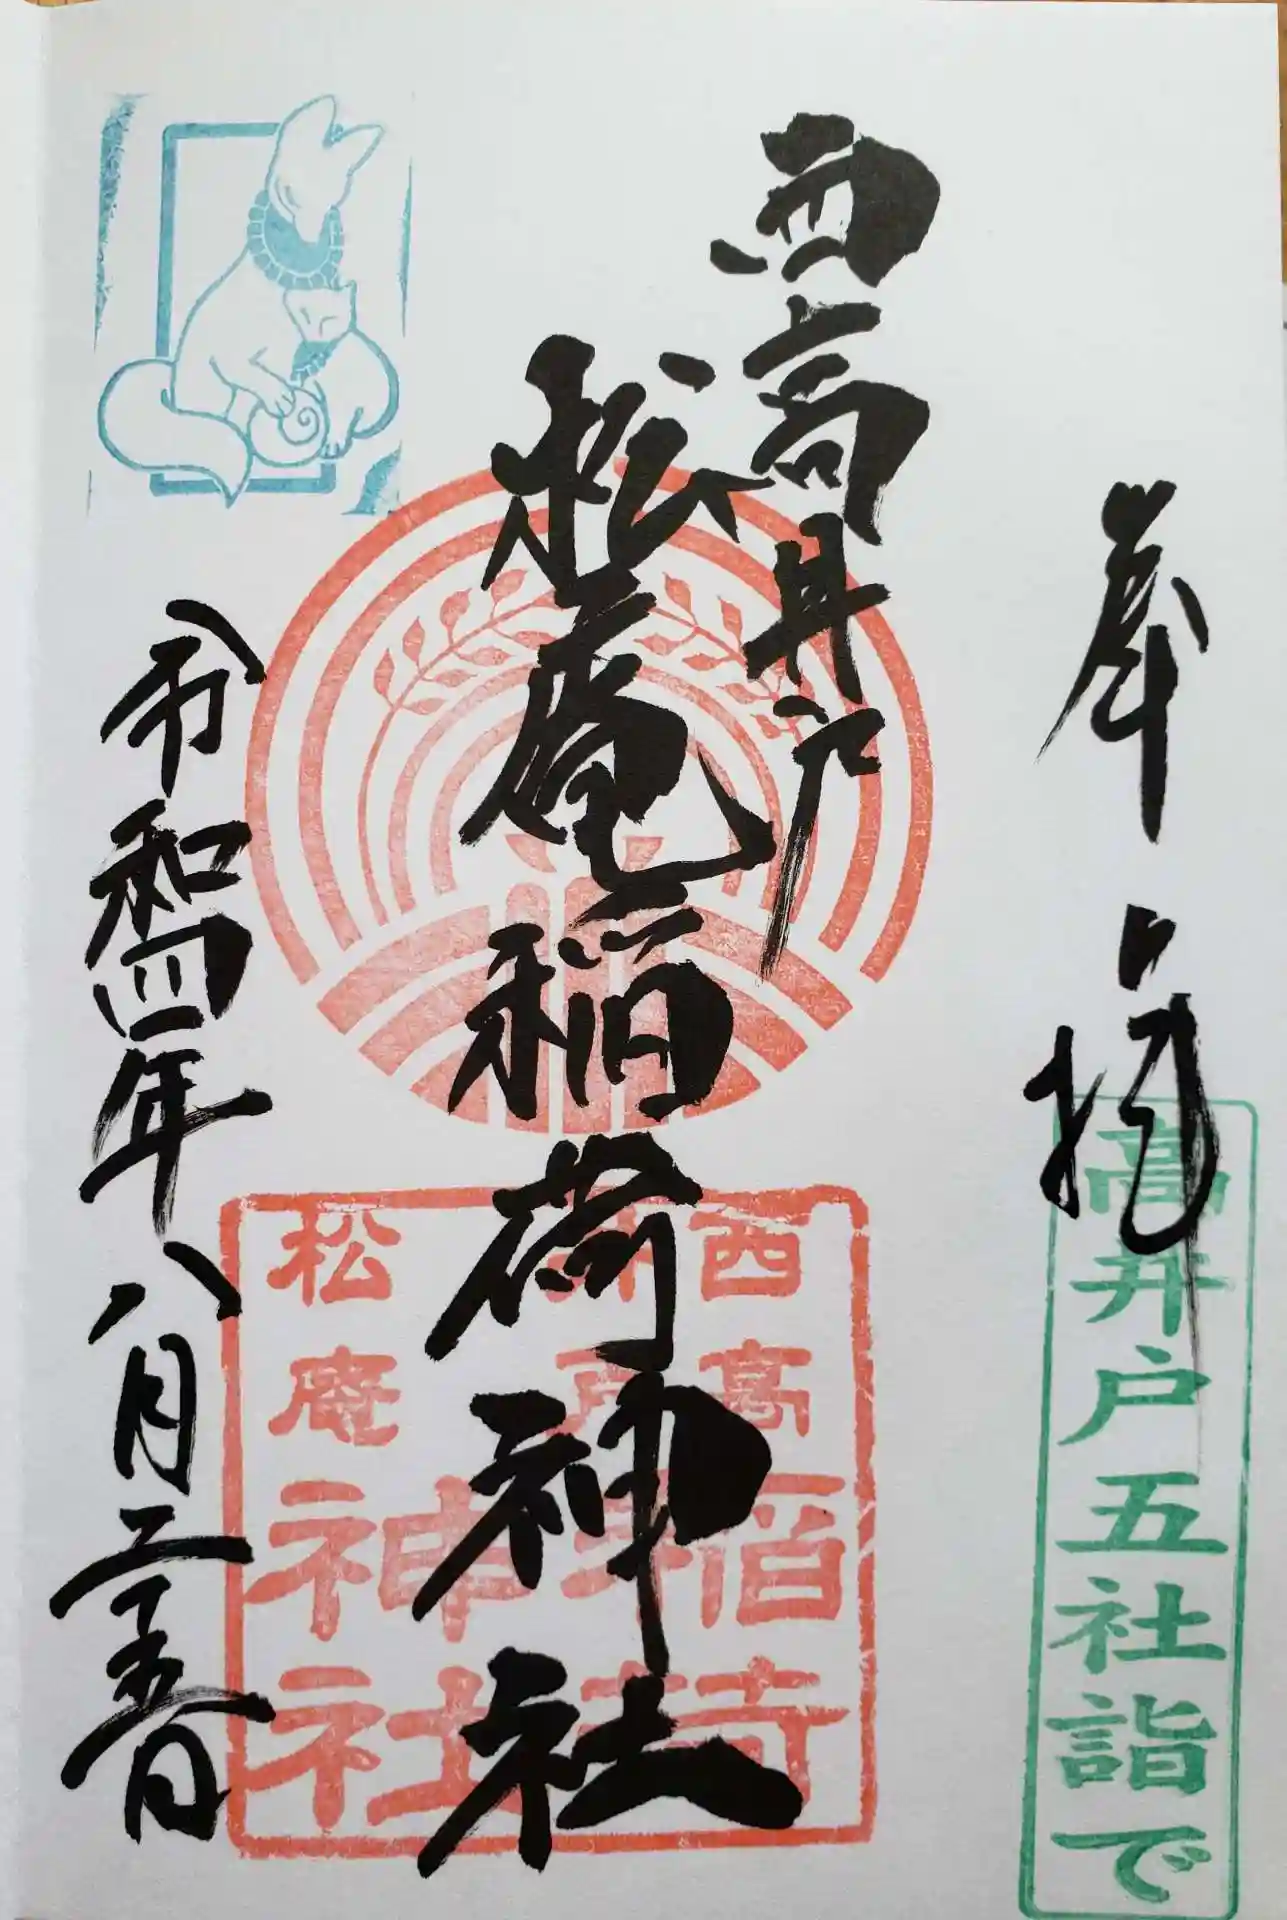 奉拝
高井戸五社詣で
西高井戸
松庵稲荷神社
西高井戸
松庵
稲荷
神社
令和四年八月二十五日